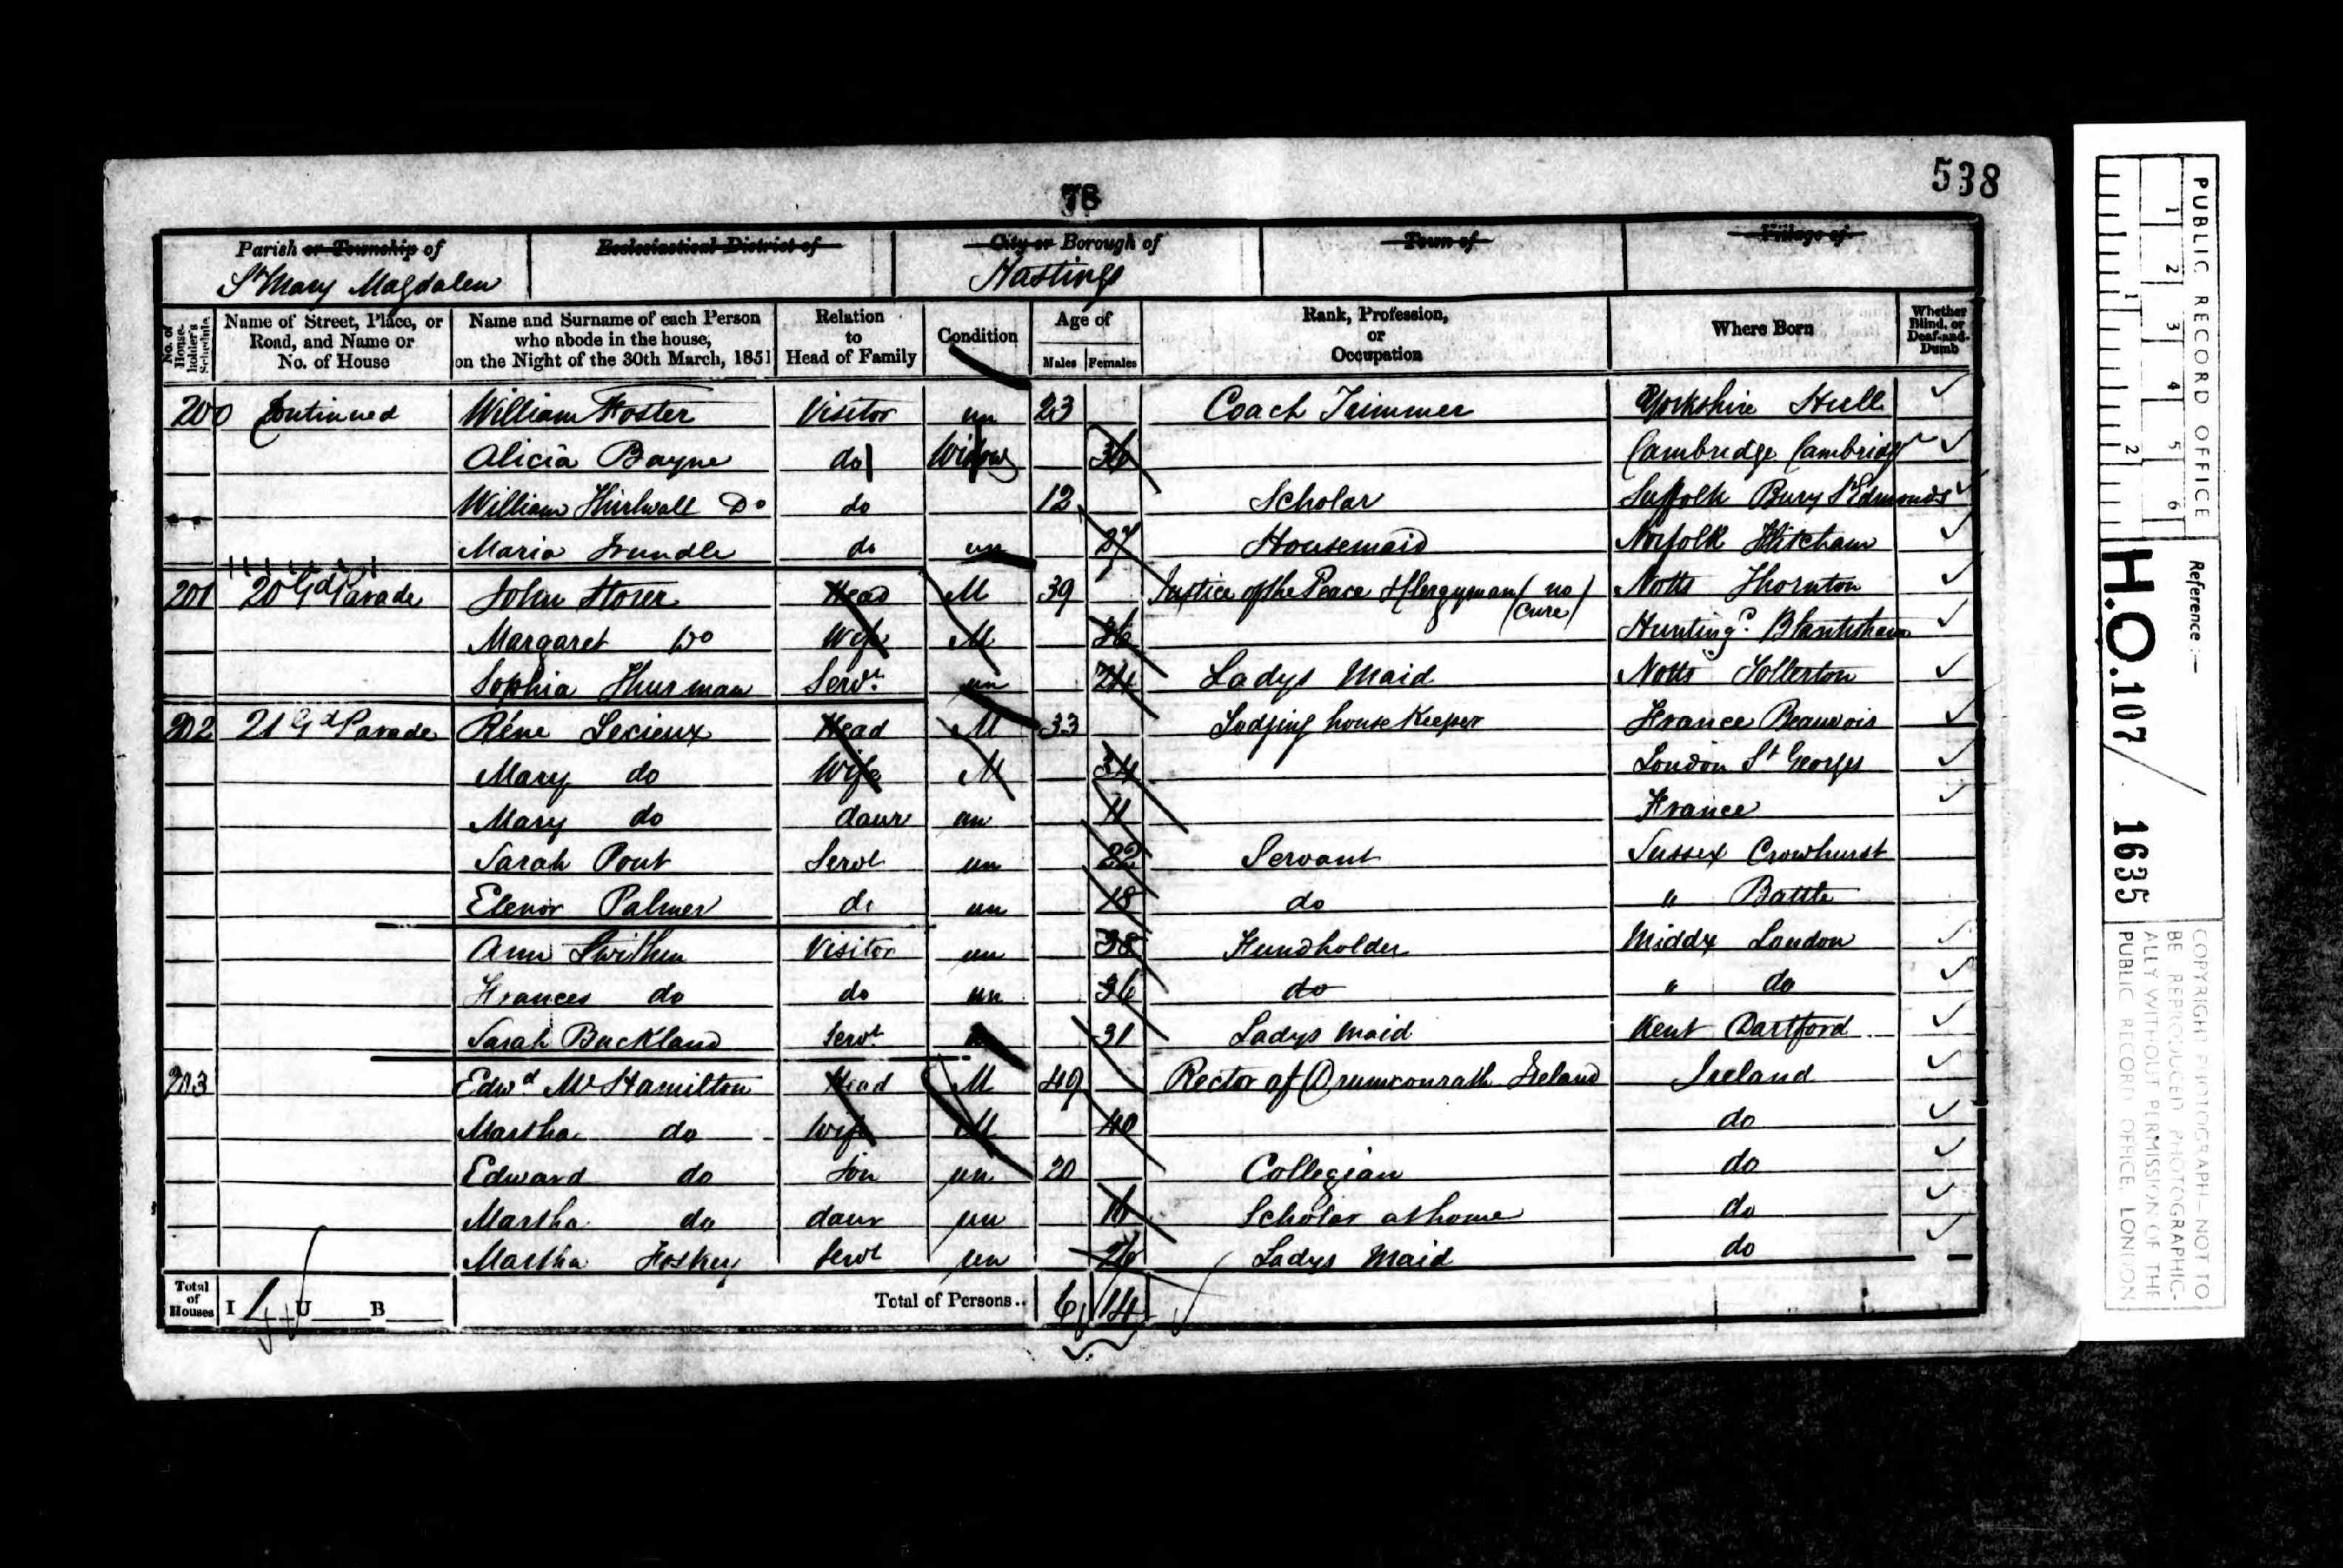 538
78
Parish or Township of
St Mary Magdalen
Ecclesiastical District of
City or Borough of
Hastings
Town of
Village of
No. of House-holder's Schedule
Name of Street, Place, or Road, and Name or No. of House
Name and Surname of each Person who abode in the house, on the Night of the 30th March, 1851
Relation to Head of Family
Condition
Age of
Males Females
Rank, Profession, or Occupation
Where Born
Whether Blind, or Deaf-and-Dumb
200 Continued William Foster Visitor un 23 Coach Trimmer Yorkshire Hull
Alicia Bayne do Widow 36 Cambridge Cambridge
William Thirlwall Do do 12 Scholar Suffolk Bury St Edmonds
Maria Trundle do un 27 Housemaid Norfolk Hitcham
201 20 Gd Parade John Storer Head M 39 Justice of the Peace & Clergyman (no cure) Notts Thornton
Margaret Do Wife M 36 Hunting. Bluntisham
Sophia Thurman Servt. un 24 Ladys Maid Notts Tollerton
202 21 Gd Parade Réne Lecieux Head M 33 Lodging house Keeper France Beauvois
Mary do Wife M 34 London St Georges
Mary do daur un 11 France
Sarah Pont Servt un 22 Servant Sussex Crowhurst
Elenor Palmer do un 18 do " Battle
Ann Swithin Visitor un 38 Fundholder Middx London
Frances do do un 36 do " do
Sarah Buckland Servt 31 Ladys Maid Kent Dartford
203 Edwd. M Hamilton Head M 49 Rector of Drumconrath Ireland Ireland
Martha do Wife M 40 do
Edward do Son un 20 Collegian do
Martha do daur un 16 Scholar at home do
Martha Foskey Servt un 26 Ladys Maid do
Total of Houses I 4 U B Total of Persons.. 6 14
PUBLIC RECORD OFFICE
1 2 3 4 5 6
1 2
Reference:—
H.O. 107 / 1635
COPYRIGHT PHOTOGRAPH—NOT TO
BE REPRODUCED PHOTOGRAPHIC-
ALLY WITHOUT PERMISSION OF THE
PUBLIC RECORD OFFICE, LONDON